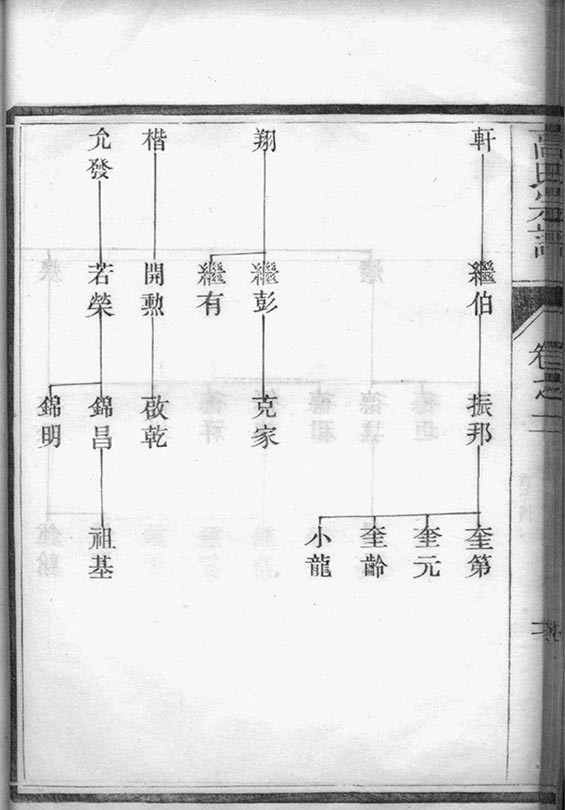 卷之二
軒
翔
楷
允發
繼伯
繼彭
繼有
開勲
若榮
振邦
克家
啟乾
錦昌
錦明
奎第
奎元
奎齡
小龍
祖基